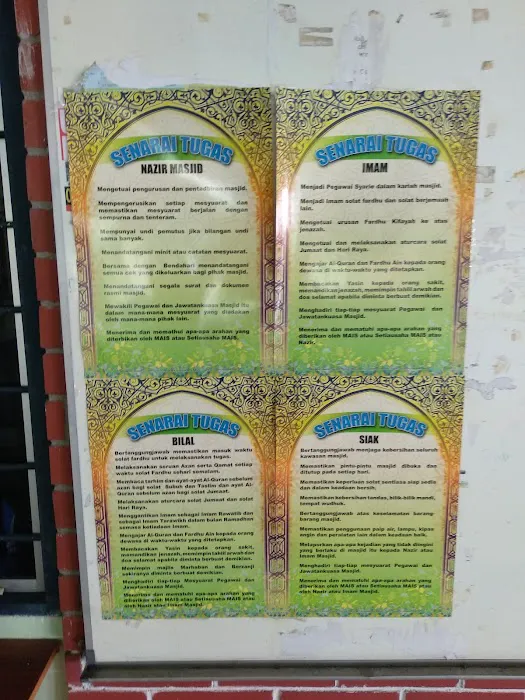 SENARAI TUGAS
NAZIR MASJID
Mengetuai pengurusan dan pentadbiran masjid.
Mempengerusikan setiap mesyuarat dan
memastikan mesyuarat berjalan dengan
sempurna dan tenteram.
Mempunyai undi pemutus jika bilangan undi
sama banyak.
Menandatangani minit atau catatan mesyuarat.
Bersama dengan Bendahari menandatangani
semua cek yang dikeluarkan bagi pihak masjid.
Menandatangani segala surat dan dokumen
rasmi masjid.
Mewakili Pegawai dan Jawatankuasa Masjid itu
dalam mana-mana mesyuarat yang diadakan
oleh mana-mana pihak lain.
Menerima dan mematuhi apa-apa arahan yang
diterbitkan oleh MAIS atau Setiausaha MAIS.
SENARAI TUGAS
IMAM
Menjadi Pegawai Syarie dalam kariah masjid.
Menjadi imam solat fardhu dan solat berjemaah
lain.
Mengetuai urusan Fardhu Kifayah ke atas
jenazah.
Mengetuai dan melaksanakan aturcara solat
Jumaat dan Hari Raya.
Mengajar Al-Quran dan Fardhu Ain kepada orang
dewasa di waktu-waktu yang ditetapkan.
Membacakan Yasin kepada orang sakit,
memandikan jenazah, memimpin tahlil arwah dan
doa selamat apabila diminta berbuat demikian.
Menghadiri tiap-tiap mesyuarat Pegawai dan
Jawatankuasa Masjid.
Menerima dan mematuhi apa-apa arahan yang
diberikan oleh MAIS atau Setiausaha MAIS atau
Nazir.
SENARAI TUGAS
BILAL
Bertanggungjawab memastikan masuk waktu
solat fardhu untuk melaksanakan tugas.
Melaksanakan seruan Azan serta Qamat setiap
waktu solat Fardhu sehari semalam.
Membaca tarhim dan ayat-ayat Al-Quran sebelum
azan bagi solat Subuh dan Taslim dan ayat Al-
Quran sebelum azan bagi solat Jumaat.
Melaksanakan aturcara solat Jumaat dan solat
Hari Raya.
Menggantikan Imam sebagai Imam Rawatib dan
sebagai Imam Terawikh dalam bulan Ramadhan
semasa ketiadaan Imam.
Mengajar Al-Quran dan Fardhu Ain kepada orang
dewasa di waktu-waktu yang ditetapkan.
Membacakan Yasin kepada orang sakit,
memandikan jenazah, memimpin tahlil arwah dan
doa selamat apabila diminta berbuat demikian.
Memimpin majlis Marhaban dan Berzanji
sekiranya diminta berbuat demikian.
Menghadiri tiap-tiap Mesyuarat Pegawai dan
Jawatankuasa Masjid.
Menerima dan mematuhi apa-apa arahan yang
diberikan oleh MAIS atau Setiausaha MAIS atau
oleh Nazir atau Imam Masjid.
SENARAI TUGAS
SIAK
Bertanggungjawab menjaga kebersihan seluruh
kawasan masjid.
Memastikan pintu-pintu masjid dibuka dan
ditutup pada setiap hari.
Memastikan keperluan solat sentiasa siap sedia
dan dalam keadaan bersih.
Memastikan kebersihan tandas, bilik-bilik mandi,
tempat wudhuk.
Bertanggungjawab atas keselamatan barang-
barang masjid.
Memastikan penggunaan paip air, lampu, kipas
angin dan peralatan lain dalam keadaan baik.
Melaporkan apa-apa kejadian yang tidak diingini
yang berlaku di masjid itu kepada Nazir atau
Imam Masjid.
Menghadiri tiap-tiap mesyuarat Pegawai dan
Jawatankuasa Masjid.
Menerima dan mematuhi apa-apa arahan yang
diberikan oleh MAIS atau Setiausaha MAIS atau
oleh Nazir atau Imam Masjid.